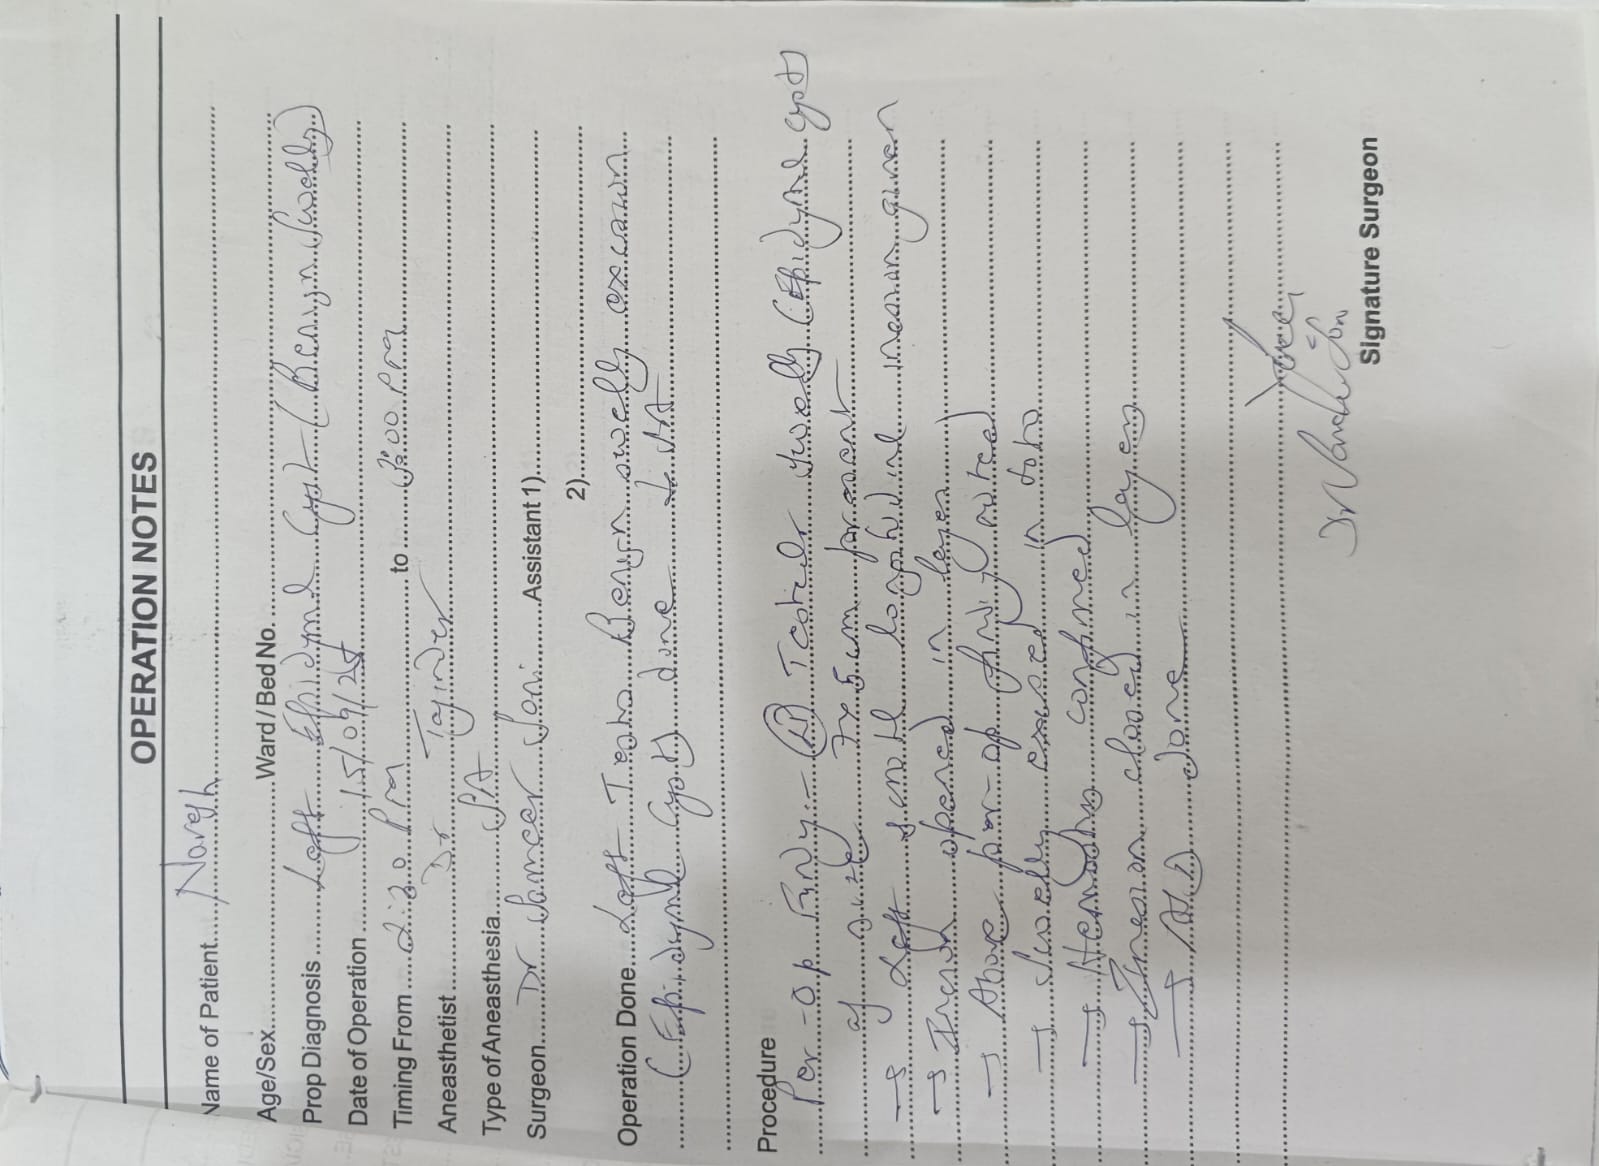 OPERATION NOTES
Name of Patient Naresh
Age/Sex Ward / Bed No.
Prop Diagnosis Left Epididymal Cyst (Benign Swelling)
Date of Operation 15/09/25
Timing From 2:30 Pm to 3:00 Pm
Aneasthetist Dr Tajinder
Type of Aneasthesia SA
Surgeon Dr Sameer Soni Assistant 1)
2)
Operation Done Left Testis Benign swelling excision
(Epididymal Cyst) done ↓ SA
Procedure
Per-Op Findg:- (Lt) Testicular swelling (Epididymal cyst)
of size 7x5 cm present
→ Left scrotal longitudinal incision given
→ Incision opened in layers
→ Above per-op findg noted
→ Swelling excised in toto
→ Hemostasis confirmed
→ Incision closed in layers
→ ASD done
Dr
Signature Surgeon